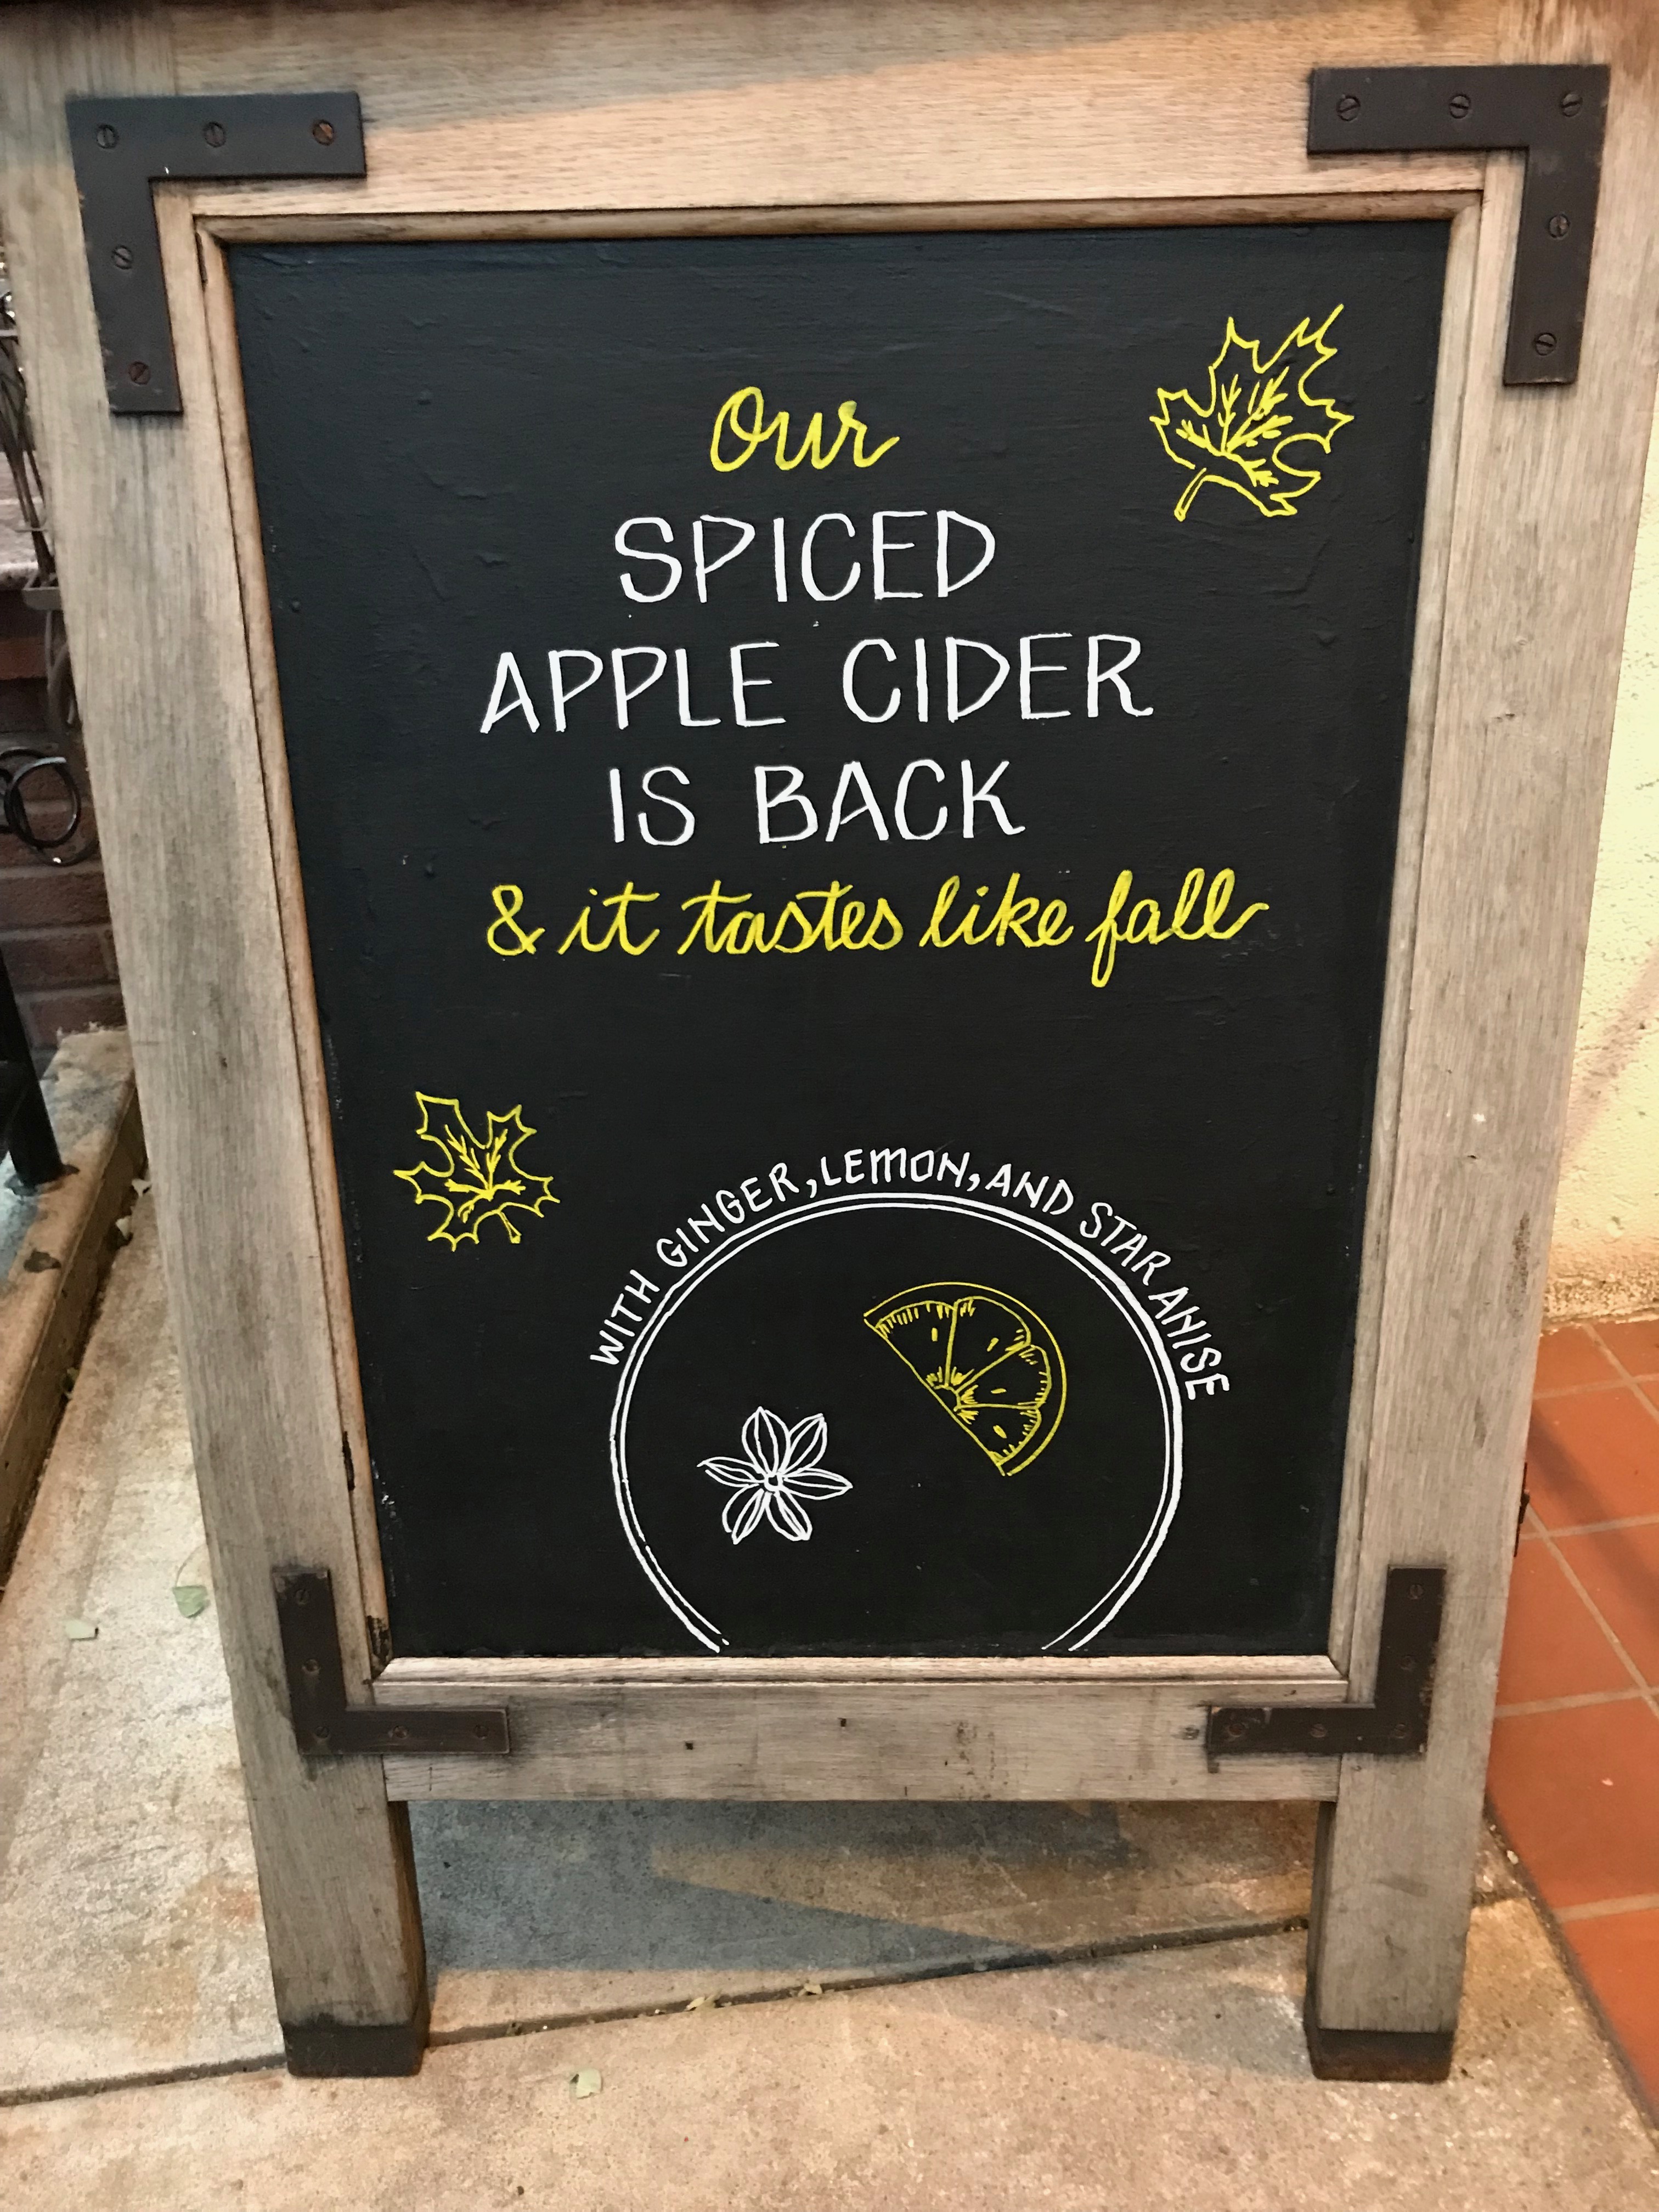 Our
SPICED
APPLE CIDER
IS BACK
& it tastes like fall
WITH GINGER, LEMON, AND STAR ANISE